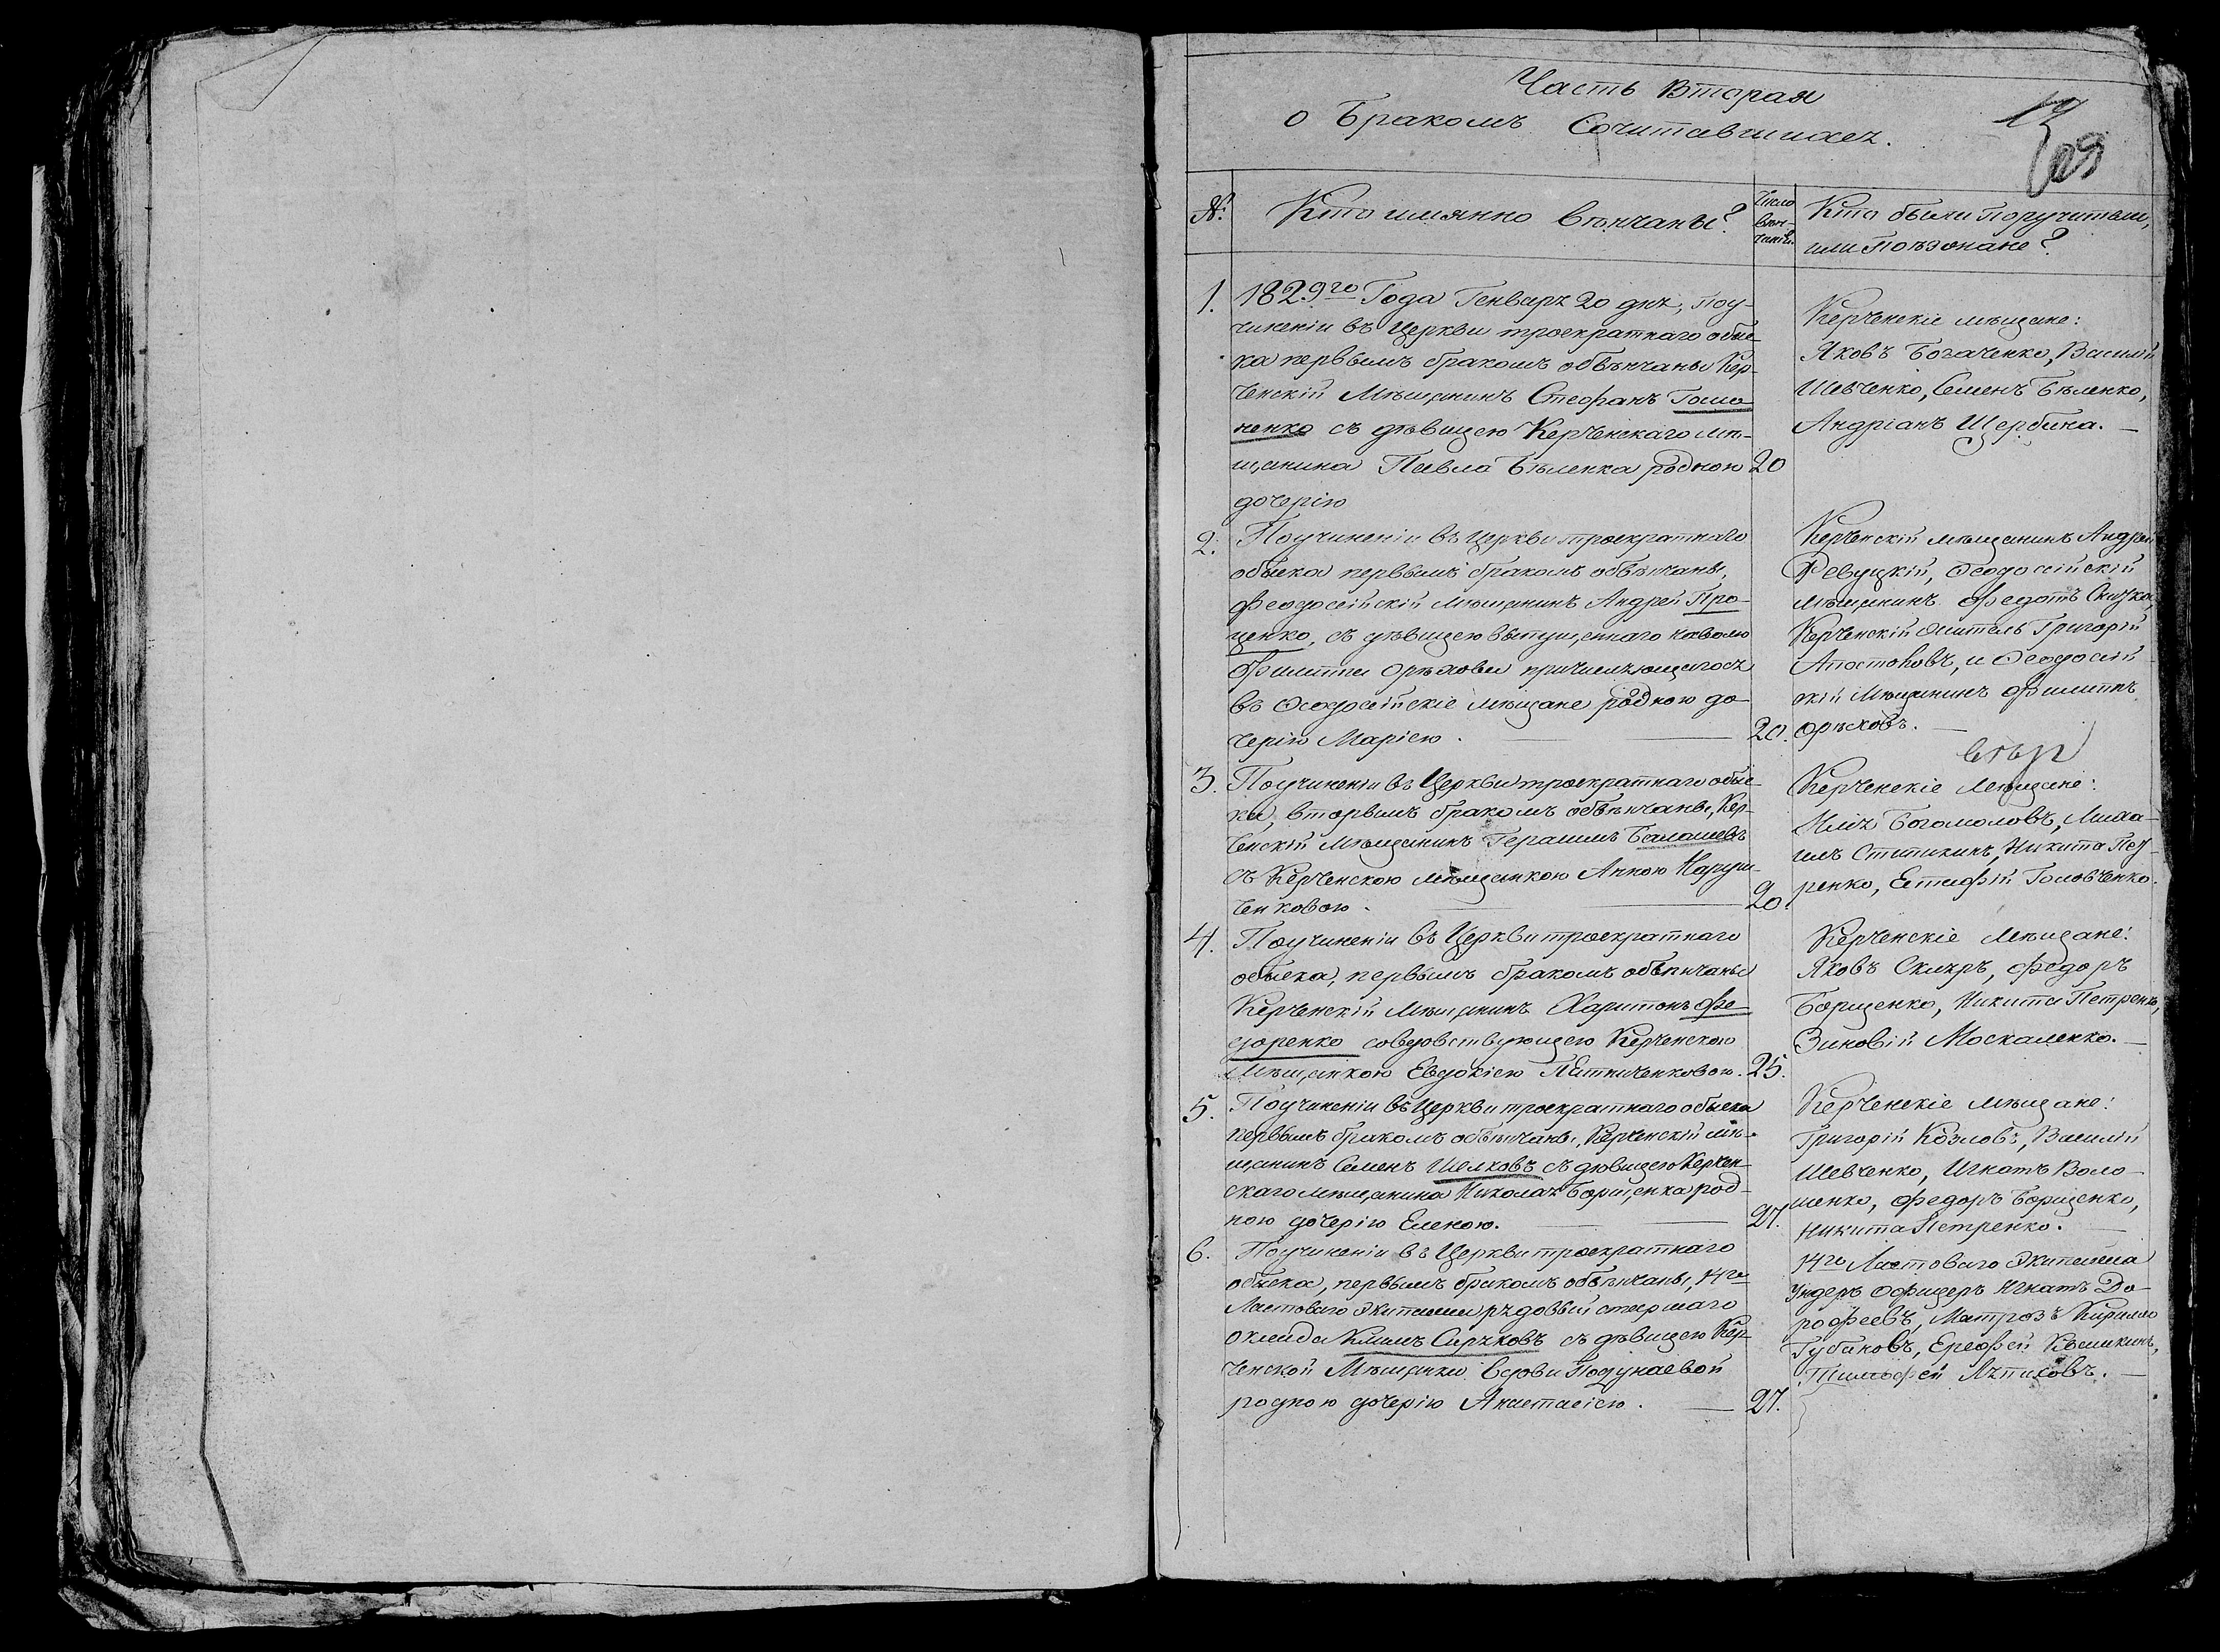 Часть Вторая
о Бракомъ Сочитавшихся.
№. Кто имянно вѣнчаны? Число вѣнчаній. Кто были поручители,
или Поѣзжане?
1. 1829го Года Генваря 20 дня, По у-
чиненіи въ Церкви троекратнаго обыс-
ка первымъ бракомъ обвѣнчаны Кер-
ченскій Мѣщанинъ Стефанъ Гома
ненко съ дѣвицею Керченскаго мѣ-
щанина Павла Бѣленка родною 20
дочерію
Керченскіе мѣщане:
Яковъ Богаченко, Василій
Шевченко, Семенъ Бѣленко,
Андріанъ Щербина.
2. По учиненіи въ Церкви троекратнаго
обыска первымъ бракомъ обвѣнчаны,
Феодосійскій мѣщанинъ Андрей Про-
ценко, съ дѣвицею
Филиппа Орѣхова причисляющагося
въ Ѳеодосійскіе мѣщане родною до-
черію Маріею. 20.
Керченскій мѣщанинъ Андрей
Ревуцкій, Ѳеодосійскій
мѣщанинъ Федотъ
Керченскій житель Григорій
Апостоловъ, и Ѳеодосій
скій Мѣщанинъ Филиппъ
Орѣховъ.
3. По учиненіи въ Церкви троекратнаго обыс-
ка, вторымъ бракомъ обвѣнчаны, Кер-
ченскій Мѣщанинъ Герасимъ Балашевъ
съ Керченскою мѣщанкою Анною
ченковою. 20.
Керченскіе Мѣщане:
Илія Богомоловъ, Миха-
илъ Никита Пет-
ренко, Евстафій Головченко.
4. По учиненіи въ Церкви троекратнаго
обыска, первымъ бракомъ обвѣнчаны
Керченскій Мѣщанинъ Харитонъ Фе
доренко со вдовствующею Керченскою
Мѣщанкою Евдокіею 25.
Керченскіе Мѣщане:
Яковъ Скляръ, Федоръ
Борщенко, Никита Петренко,
Зиновій Москаленко.
5. По учиненіи въ Церкви троекратнаго обыска
первымъ бракомъ обвѣнчаны, Керченскій мѣ-
щанинъ Семенъ Шелковъ съ дѣвицею Керчен-
скаго мѣщанина Николая Борщенка род-
ною дочерію Еленою. 27.
Керченскіе мѣщане:
Григорій Козловъ, Василій
Шевченко, Игнатъ Воло-
шенко, Федоръ Борщенко,
Никита Петренко.
6. По учиненіи въ Церкви троекратнаго
обыска, первымъ бракомъ обвѣнчаны, 14го
Ластоваго Экипажа рядовый старшаго
оклада Климъ Сиряковъ съ дѣвицею Кер-
ченской Мѣщанки вдовы Подунаевой
родною дочерію Анастасіею. 27.
14го Ластоваго Экипажа
Ундеръ Офицеръ Игнатъ До-
рофеевъ, Матрозъ Кирило
Губановъ, Ерофей
Тимофей Ляпиковъ.